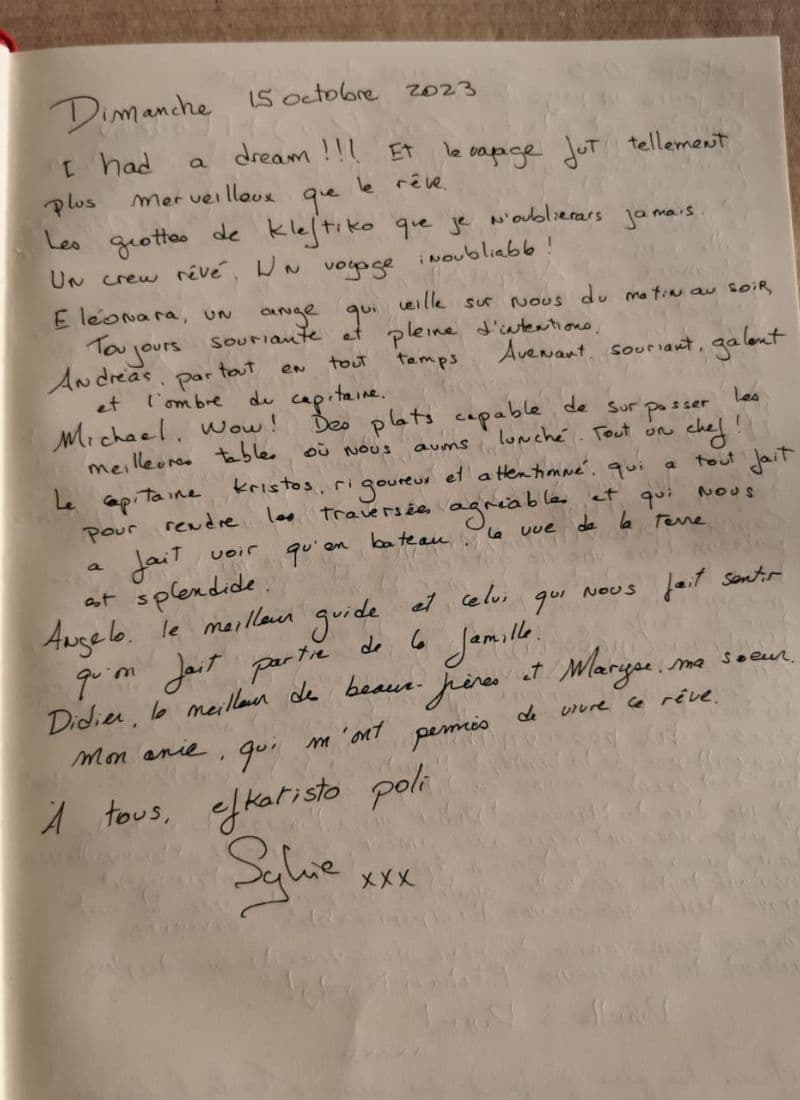 Dimanche 15 octobre 2023
I had a dream!!! Et le voyage fut tellement
plus merveilleux que le rêve.
Les grottes de Kleftiko que je n'oublierais jamais.
Un crew rêvé. Un voyage inoubliable!
Eléonara, un ange qui veille sur nous du matin au soir,
Toujours souriante et pleine d'intentions.
Andreas, partout en tout temps. Avenant, souriant, galant
et l'ombre du capitaine.
Michael, Wow! Des plats capable de surpasser les
meilleures tables où nous avons lunché. Tout un chef!
Le capitaine Kristos, rigoureux et attentionné, qui a tout fait
pour rendre les traversées agréables et qui nous
a fait voir qu'en bateau, la vue de la terre
est splendide.
Angelo, le meilleur guide et celui qui nous fait sentir
qu'on fait partie de la famille.
Didier, le meilleur de beaux-frères et Maryse, ma soeur.
Mon amie, qui m'ont permis de vivre ce rêve.
À tous, efkaristo poli
Sylvie xxx